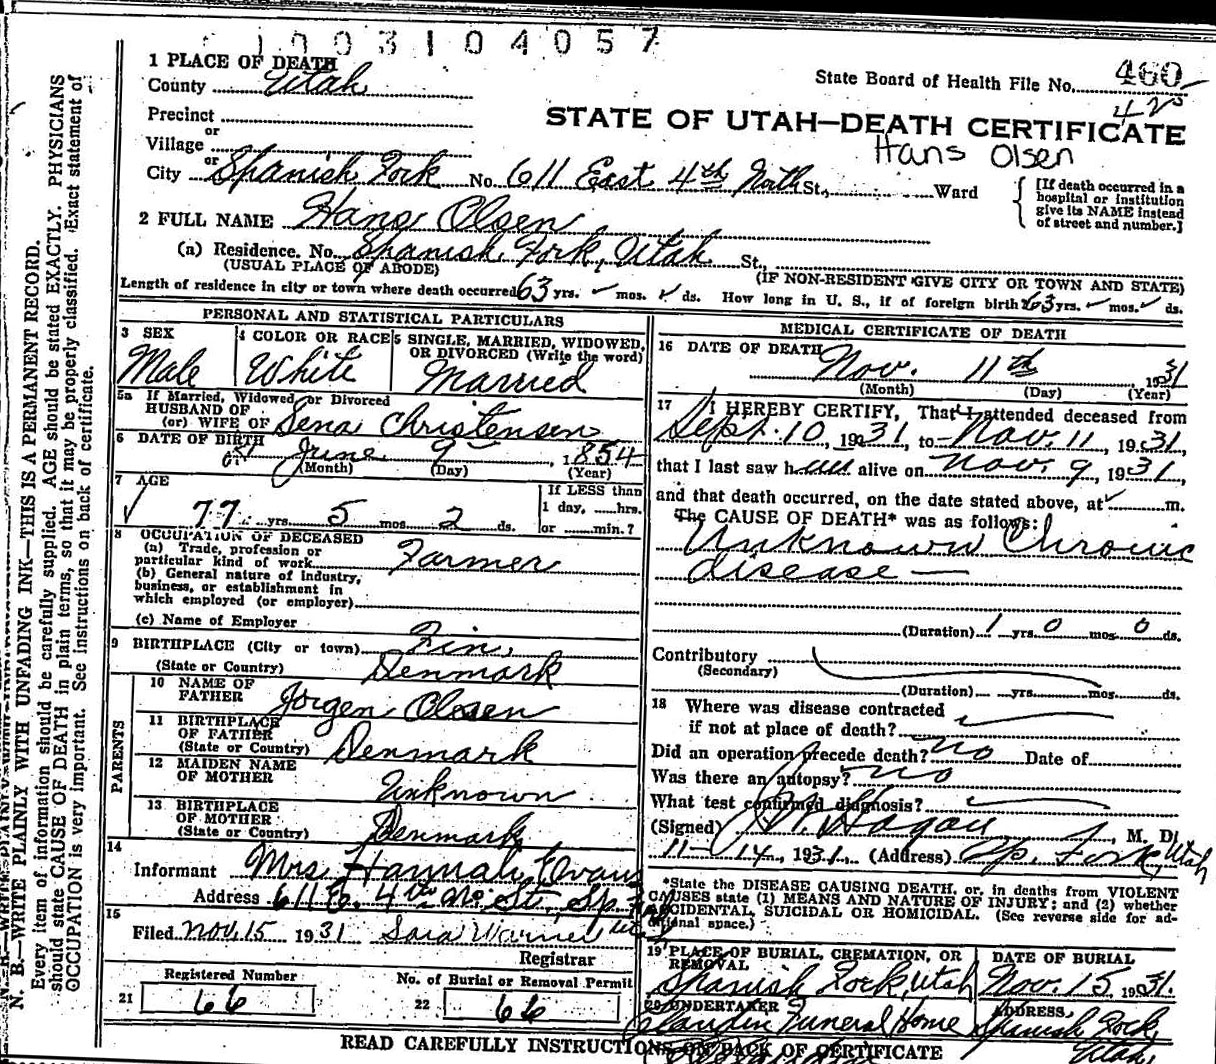 1003104057
1 PLACE OF DEATH
County Utah
State Board of Health File No. 460
425
Precinct
or
Village
or
STATE OF UTAH—DEATH CERTIFICATE
Hans Olsen
City Spanish Fork No. 611 East 4th North St., Ward
[If death occurred in a
hospital or institution
give its NAME instead
of street and number.]
2 FULL NAME Hans Olsen
(a) Residence. No. Spanish Fork, Utah St.,
(USUAL PLACE OF ABODE) (IF NON-RESIDENT GIVE CITY OR TOWN AND STATE)
Length of residence in city or town where death occurred 63 yrs. ✓ mos. ✓ ds. How long in U. S., if of foreign birth? 63 yrs. ✓ mos. ✓ ds.
PERSONAL AND STATISTICAL PARTICULARS
3 SEX
Male
4 COLOR OR RACE
White
5 SINGLE, MARRIED, WIDOWED,
OR DIVORCED (Write the word)
Married
5a If Married, Widowed or Divorced
HUSBAND OF
(or) WIFE OF Sena Christensen
6 DATE OF BIRTH
June 9 1854
(Month) (Day) (Year)
7 AGE
✓ 77 yrs 5 mos 2 ds.
If LESS than
1 day, hrs.
or min.?
8 OCCUPATION OF DECEASED
(a) Trade, profession or
particular kind of work Farmer
(b) General nature of industry,
business, or establishment in
which employed (or employer)
(c) Name of Employer
9 BIRTHPLACE (City or town) Fin,
(State or Country) Denmark
PARENTS
10 NAME OF
FATHER Jorgen Olsen
11 BIRTHPLACE
OF FATHER
(State or Country) Denmark
12 MAIDEN NAME
OF MOTHER Unknown
13 BIRTHPLACE
OF MOTHER
(State or Country) Denmark
14
Informant Mrs. Hannah Evans
Address 611 E. 4th No. St. Sp.
15
Filed Nov. 15 1931 Sara Warner
Registrar
Registered Number
21 66
No. of Burial or Removal Permit
22 66
MEDICAL CERTIFICATE OF DEATH
16 DATE OF DEATH
Nov. 11th 1931
(Month) (Day) (Year)
17 I HEREBY CERTIFY, That I attended deceased from
Sept. 10, 1931, to Nov. 11, 1931,
that I last saw him alive on Nov. 9, 1931,
and that death occurred, on the date stated above, at ✓ m.
The CAUSE OF DEATH* was as follows:
Unknown Chronic
disease —
(Duration) 1 yrs 0 mos 0 ds.
Contributory
(Secondary)
(Duration) yrs mos ds.
18 Where was disease contracted
if not at place of death?
Did an operation precede death? no Date of
Was there an autopsy? no
What test confirmed diagnosis?
(Signed) Hagan, M. D.
11-14, 1931, (Address) Sp. Fork, Utah
*State the DISEASE CAUSING DEATH, or, in deaths from VIOLENT
CAUSES state (1) MEANS AND NATURE OF INJURY; and (2) whether
ACCIDENTAL, SUICIDAL OR HOMICIDAL. (See reverse side for ad-
ditional space.)
19 PLACE OF BURIAL, CREMATION, OR
REMOVAL
Spanish Fork, Utah
DATE OF BURIAL
Nov. 15, 1931.
20 UNDERTAKER
Claudin Funeral Home
ADDRESS
Spanish Fork,
Utah
READ CAREFULLY INSTRUCTIONS ON BACK OF CERTIFICATE
N. B.—WRITE PLAINLY WITH UNFADING INK—THIS IS A PERMANENT RECORD.
Every item of information should be carefully supplied. AGE should be stated EXACTLY. PHYSICIANS
should state CAUSE OF DEATH in plain terms, so that it may be properly classified. Exact statement of
OCCUPATION is very important. See instructions on back of certificate.